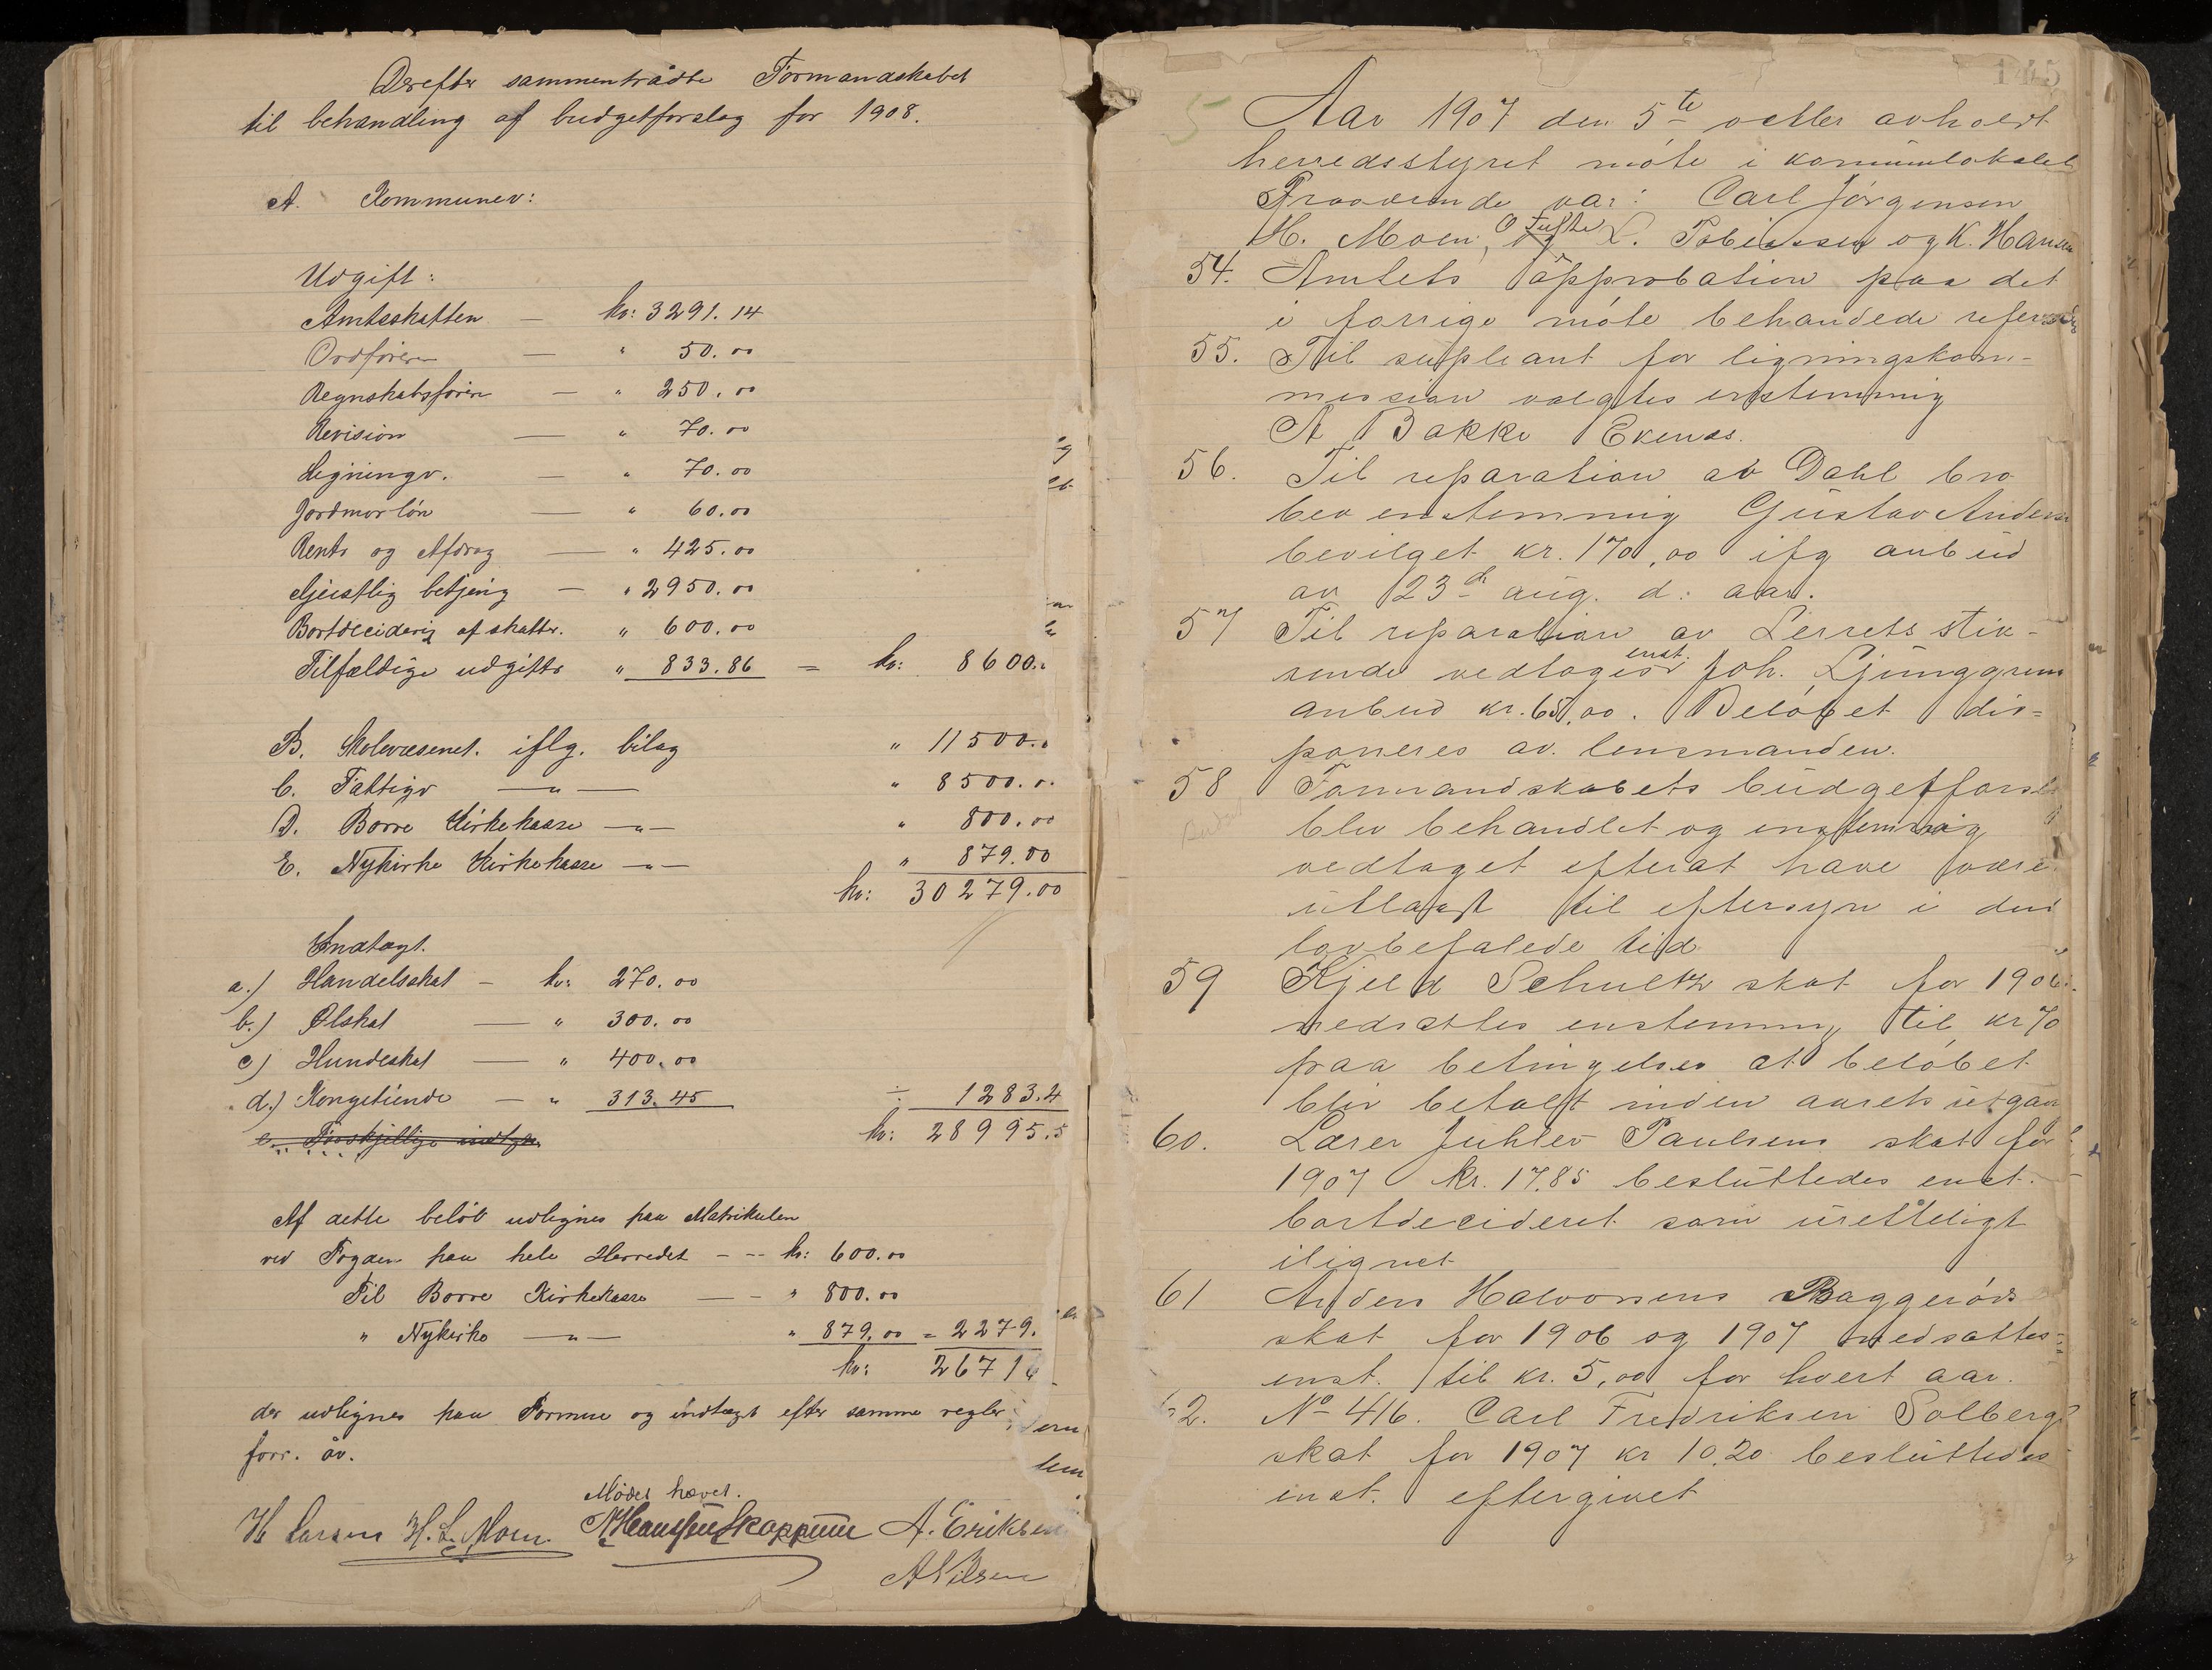 Derefter sammentrådte Formandskabet
til behandling af budgetforslag for 1908.
A. Kommunev:
Udgift:
Amtsskatten — kr: 3291.14
Ordføreren — " 50.00
Regnskabsføren — " 250.00
Revision — " 70.00
Ligningv. — " 70.00
Jordmorløn — " 60.00
Rente og Afdrag — " 425.00
Gjeistlig betjening — " 2950.00
Bortdeciderig af skatter. " 600.00
Tilfældige udgifter " 833.86 = kr: 8600.
B. Skolevæsenet. iflg. bilag " 11500.
C. Fattigv —"— " 8500.
D. Borre Kirkekasse —"— " 800.00
E. Nykirke Kirkekasse —"— " 879.00
kr: 30279.00
Indtægt.
a.) Handelsskat — kr: 270.00
b.) Ølskat — " 300.00
c) Hundeskat — " 400.00
d.) Kongetiende — " 313.45 ÷ 1283.4
e. Forskjellige indtgr. kr: 28995.5
Af dette beløb udlignes paa Matrikulen
ved Fogden paa hele Herredet - -- kr: 600.00
Til Borre Kirkekasse — - " 800.00
" Nykirke —"— " 879.00 = 2279.
kr: 26716
der udlignes paa Formue og indtægt efter samme regler
forr. år.
Mødet hævet.
H Larsen H. L. Moen N Hanssen Skoppum A. Eriksen
A Nilsen
145
5
Aar 1907 den 5te october avholdt
herredsstyret møte i kommunelokalet
Fraværende var: Carl Jørgensen
H. Moen, O Tufte og L. Tobiassen og K. Hansen
54. Amtets approbation paa det
i forrige møte behandlede
55. Til supleant for ligningskom-
mission valgtes enstemmig
A Bakke Ekenes.
56. Til reparation av Dahl bro
blev enstemmig Gustav Anders
bevilget kr. 170,00 ifg anbud
av 23de aug. d: aar.
57 Til reparation av Lerrets stik-
rende vedtages enst. Joh. Ljunggrens
anbud kr. 65,00. Beløbet dis=
poneres av. lensmanden.
58 Formandskabets budgetforsl
blev behandlet og enstemmig
vedtaget efterat have være
utlagt til eftersyn i den
lovbefalede tid
59 Kjeld Schultz skat for 1906
nedsattes enstemmig til kr 70
paa betingelse at beløbet
blir betalt inden aarets utgang
60. Lærer Juhler Paulsens skat for
1907 kr. 17.85 besluttedes enst.
bortdecideret som uretteligt
ilignet
61 Anders Halvorsens Baggerøds
skat for 1906 og 1907 nedsattes
enst. til kr. 5,00 for hvert aar.
62. No 416. Carl Fredriksen Solbergs
skat for 1907 kr 10.20 besluttedes
enst. eftergivet